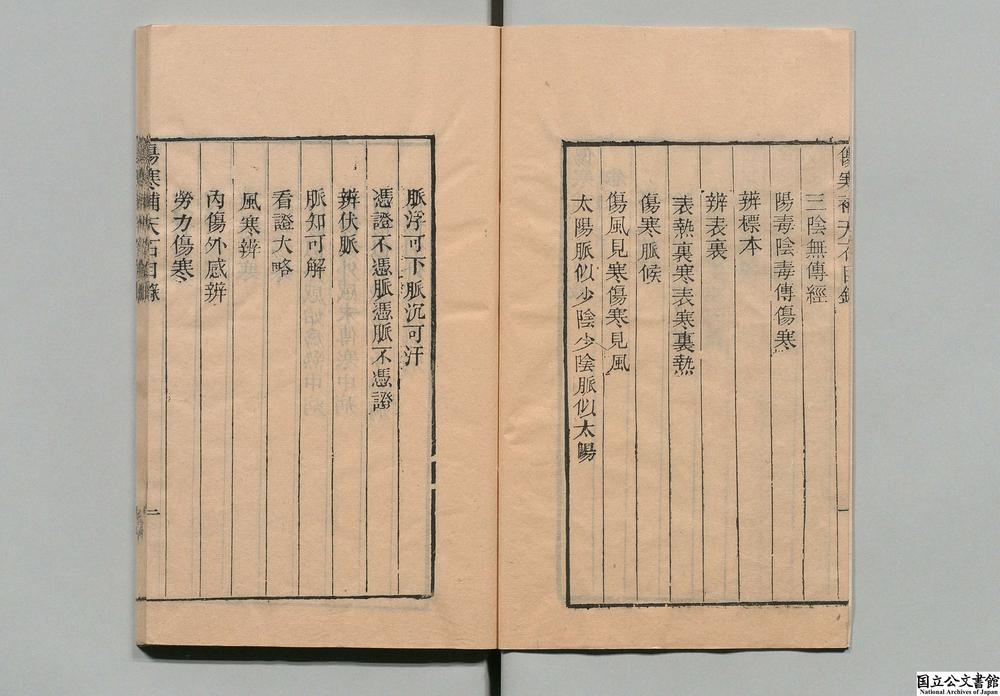 傷寒補天石目錄
三陰無傳經
陽毒陰毒傳傷寒
辨標本
辨表裏
表熱裏寒表寒裏熱
傷寒脈候
傷風見寒傷寒見風
太陽脈似少陰少陰脈似太陽
一
脈浮可下脈沉可汗
憑證不憑脈憑脈不憑證
辨伏脈
脈知可解
看證大略
風寒辨
內傷外感辨
勞力傷寒
傷寒補天石目錄
二
国立公文書館
National Archives of Japan